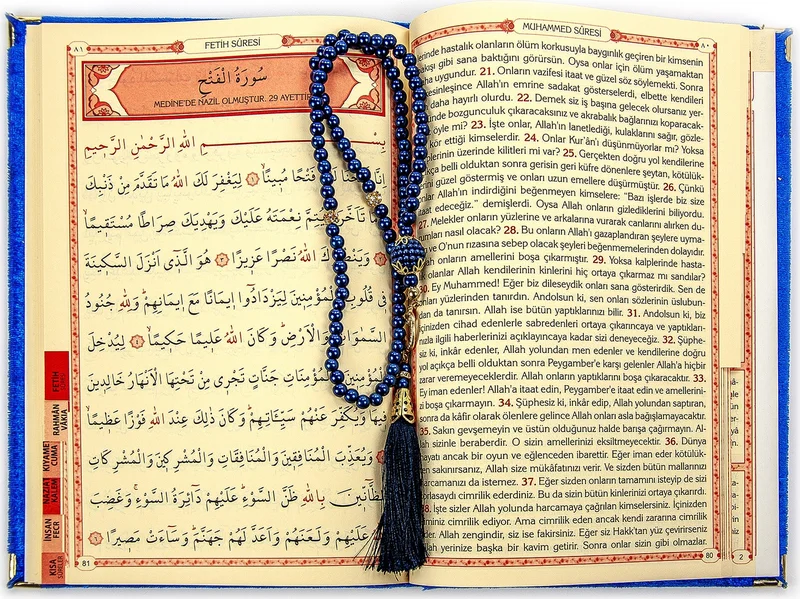 MUHAMMED SÛRESİ
٨٠
erinde hastalık olanların ölüm korkusuyla baygınlık geçiren bir kimsenin
akışı gibi sana baktığını görürsün. Oysa onlar için ölüm yaşamaktan
ha uygundur. 21. Onların vazifesi itaat ve güzel söz söylemekti. Sonra
esinleşince Allah'ın emrine sadakat gösterselerdi, elbette kendileri
daha hayırlı olurdu. 22. Demek siz iş başına gelecek olursanız yer-
ünde bozgunculuk çıkaracaksınız ve akrabalık bağlarınızı koparacak-
öyle mi? 23. İşte onlar, Allah'ın lanetlediği, kulaklarını sağır, gözle-
kör ettiği kimselerdir. 24. Onlar Kur'ân'ı düşünmüyorlar mı? Yoksa
plerinin üzerinde kilitleri mi var? 25. Gerçekten doğru yol kendilerine
çka belli olduktan sonra gerisin geri küfre dönenlere şeytan, kötülük-
ni güzel göstermiş ve onları uzun emellere düşürmüştür. 26. Çünkü
nlar Allah'ın indirdiğini beğenmeyen kimselere: "Bazı işlerde biz size
aat edeceğiz." demişlerdi. Oysa Allah onların gizlediklerini biliyordu.
27. Melekler onların yüzlerine ve arkalarına vurarak canlarını alırken du-
rumları nasıl olacak? 28. Bu onların Allah'ı gazaplandıran şeylere uyma-
ı ve O'nun rızasına sebep olacak şeyleri beğenmemelerinden dolayıdır.
ah onların amellerini boşa çıkarmıştır. 29. Yoksa kalplerinde hasta-
olanlar Allah kendilerinin kinlerini hiç ortaya çıkarmaz mı sandılar?
30. Ey Muhammed! Eğer biz dileseydik onları sana gösterirdik. Sen de
onları yüzlerinden tanırdın. Andolsun ki, sen onları sözlerinin üslubun-
dan da tanırsın. Allah ise bütün yaptıklarınızı bilir. 31. Andolsun ki, biz
içinizden cihad edenlerle sabredenleri ortaya çıkarıncaya ve yaptıkları-
nızla ilgili haberlerinizi açıklayıncaya kadar sizi deneyeceğiz. 32. Şüphe-
siz ki, inkâr edenler, Allah yolundan men edenler ve kendilerine doğru
yol açıkça belli olduktan sonra Peygamber'e karşı gelenler Allah'a hiçbir
zarar veremeyeceklerdir. Allah onların yaptıklarını boşa çıkaracaktır. 33.
Ey iman edenler! Allah'a itaat edin, Peygamber'e itaat edin ve amelleri-
zi boşa çıkarmayın. 34. Şüphesiz ki, inkâr edip, Allah yolundan saptıran,
sonra da kâfir olarak ölenlere gelince Allah onları asla bağışlamayacaktır.
35. Sakın gevşemeyin ve üstün olduğunuz halde barışa çağırmayın. Al-
ah sizinle beraberdir. O sizin amellerinizi eksiltmeyecektir. 36. Dünya
ayatı ancak bir oyun ve eğlenceden ibarettir. Eğer iman eder kötülük-
en sakınırsanız, Allah size mükâfatınızı verir. Ve sizden bütün mallarınızı
arcamanızı da istemez. 37. Eğer sizden onların tamamını isteyip de sizi
orlasaydı cimrilik ederdiniz. Bu da sizin bütün kinlerinizi ortaya çıkarırdı.
38. İşte sizler Allah yolunda harcamaya çağrılan kimselersiniz. İçinizden
iminiz cimrilik ediyor. Ama cimrilik eden ancak kendi zararına cimrilik
er. Allah zengindir, siz ise fakirsiniz. Eğer siz Hakk'tan yüz çevirirseniz
ah yerinize başka bir kavim getirir. Sonra onlar sizin gibi olmazlar.
80
2
٨١
FETİH SÛRESİ
سُورَةُ الْفَتْحِ
MEDİNE'DE NAZİL OLMUŞTUR. 29 AYETTİ
بِسْـــــمِ اللهِ الرَّحْمٰنِ الرَّحِيمِ
اِنَّا فَتْحًا مُبِينًا ۝١ لِيَغْفِرَ لَكَ اللهُ مَا تَقَدَّمَ مِنْ ذَنْبِكَ
مَا تَاَخَّرَ وَيُتِمَّ نِعْمَتَهُ عَلَيْكَ وَيَهْدِيَكَ صِرَاطًا مُسْتَقِيمًا
۝٢ وَيَنْصُرَكَ اللهُ نَصْرًا عَزِيزًا ۝٣ هُوَ الَّذِى اَنْزَلَ السَّكِينَةَ
فِى قُلُوبِ الْمُؤْمِنِينَ لِيَزْدَادُوا اِيمَانًا مَعَ اِيمَانِهِمْ وَلِلهِ جُنُودُ
السَّمٰوَاتِ وَالْاَرْضِ وَكَانَ اللهُ عَلِيمًا حَكِيمًا ۝٤ لِيُدْخِلَ
الْمُؤْمِنِينَ وَالْمُؤْمِنَاتِ جَنَّاتٍ تَجْرِى مِنْ تَحْتِهَا الْاَنْهَارُ خَالِدِينَ
فِيهَا وَيُكَفِّرَ عَنْهُمْ سَيِّئَاتِهِمْ وَكَانَ ذٰلِكَ عِنْدَ اللهِ فَوْزًا عَظِيمًا
۝٥ وَيُعَذِّبَ الْمُنَافِقِينَ وَالْمُنَافِقَاتِ وَالْمُشْرِكِينَ وَالْمُشْرِكَاتِ
الظَّانِّينَ بِاللهِ ظَنَّ السَّوْءِ عَلَيْهِمْ دَائِرَةُ السَّوْءِ وَغَضِبَ
عَلَيْهِمْ وَلَعَنَهُمْ وَاَعَدَّ لَهُمْ جَهَنَّمَ وَسَاءَتْ مَصِيرًا ۝٦
81
FETİH
RAHMÂN
VÂKIA
KIYAMET
CUMA
NAZİAT
KALEM
İNSAN
FECR
KISA
SÛRELER